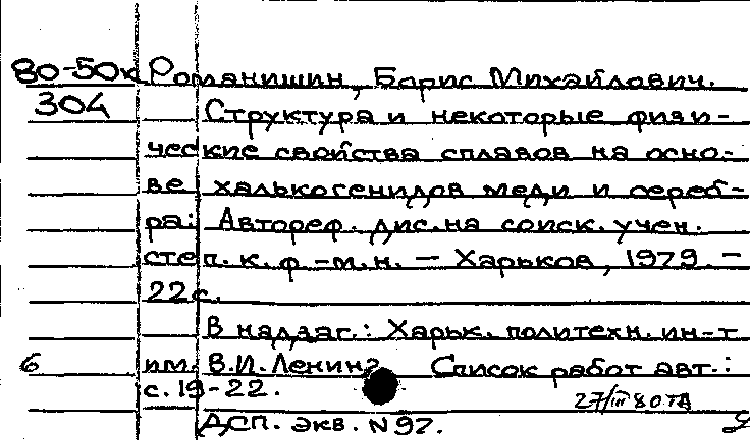 80-50к Романишин, Борис Михайлович.
304 Структура и некоторые физи-
ческие свойства сплавов на осно-
ве халькогенидов меди и сереб-
ра: Автореф. дис. на соиск. учен.
степ. к. ф.-м. н. — Харьков, 1979. —
22 с.
В надзаг.: Харьк. политехн. ин-т
6 им. В.И. Ленина. Список работ авт.:
с. 19-22.
27/III 80 ТА
ДСП. экз. N 97.